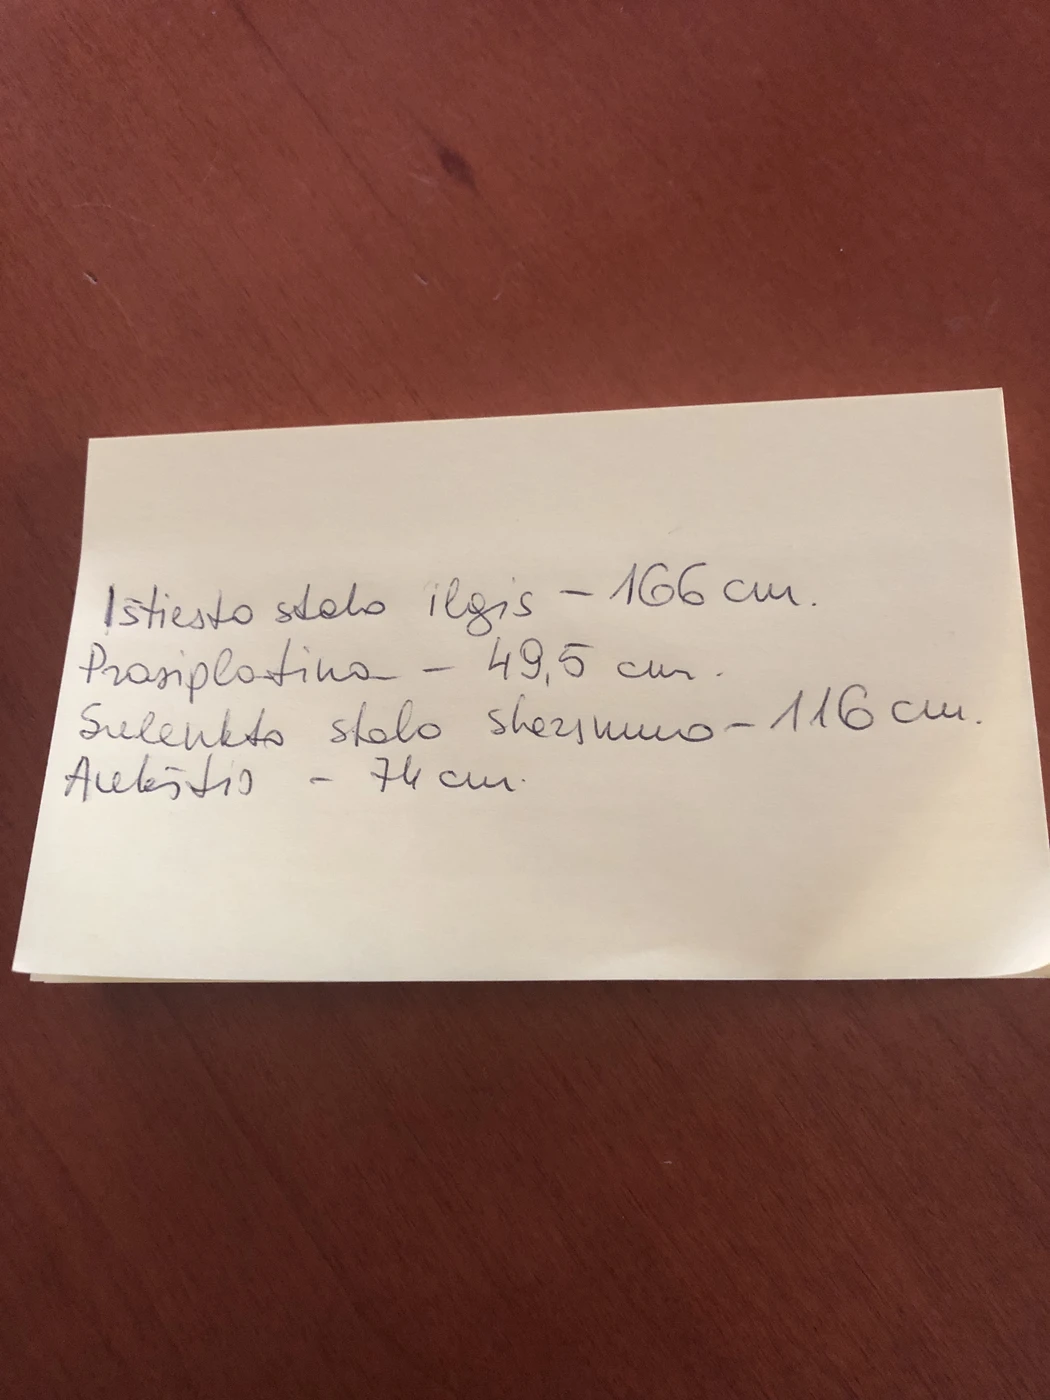 Ištiesto stalo ilgis - 166 cm.
Prasiplatina - 49,5 cm.
Sulenkto stalo skersmuo - 116 cm.
Aukštis - 74 cm.